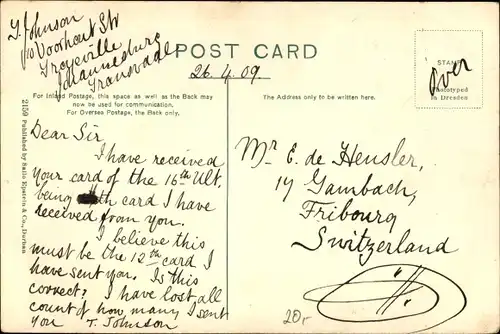 T. Johnson
70 Voorhout Str
Troyeville
Johannesburg
Transvaal
POST CARD
26.4.09
STAMP
Over
Phototyped
in Dresden
For Inland Postage, this space as well as the Back may
now be used for communication.
For Oversea Postage, the Back only.
The Address only to be written here.
2159 Published by Sallo Epstein & Co., Durban
Dear Sir
I have received
your card of the 16th Ult.
being th card I have
received from you.
I believe this
must be the 12th card I
have sent you. Is this
correct? I have lost all
count of how many I sent
you T. Johnson
Mr E. de Heusler,
14 Gambach,
Fribourg
Switzerland
20,-